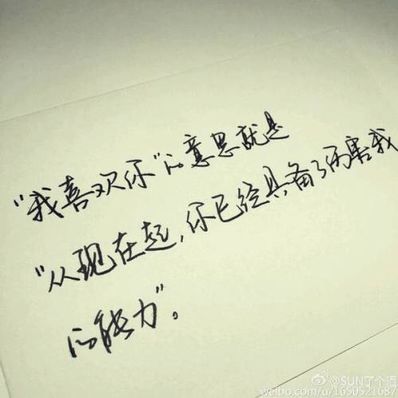 “我喜欢你”的意思就是
“从现在起,你已经具备了伤害我
的能力”。
@SUN了个沼
weibo.com/u/1650521687